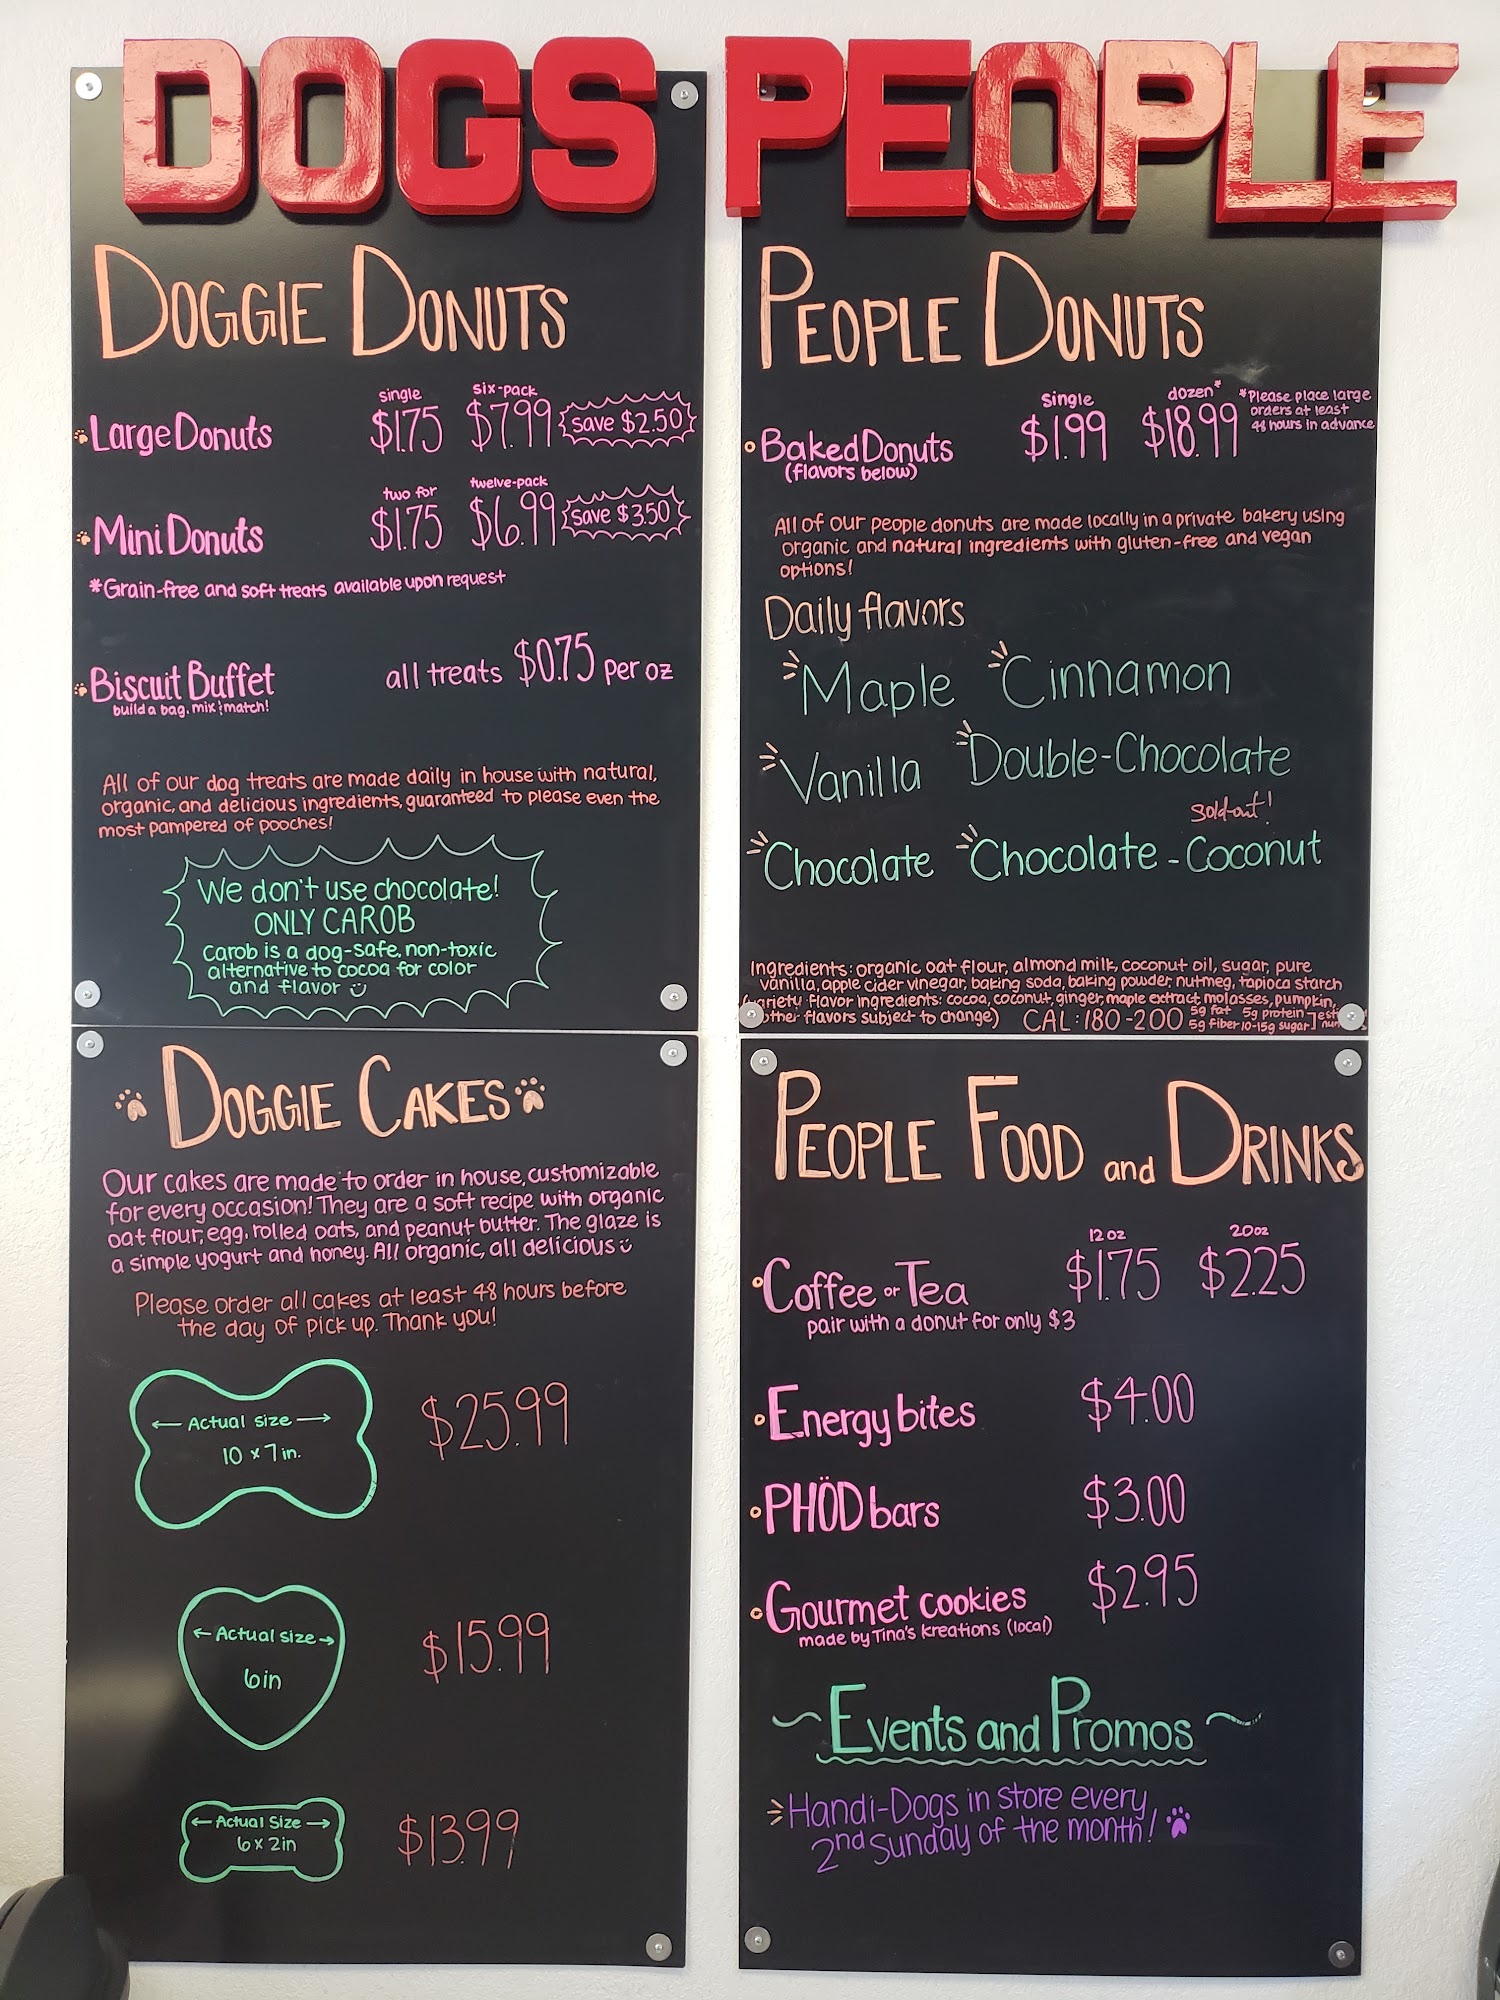 DOGS
DOGGIE DONUTS
single six-pack
Large Donuts $1.75 $7.99 save $2.50
two for twelve-pack
Mini Donuts $1.75 $6.99 save $3.50
*Grain-free and soft treats available upon request
Biscuit Buffet all treats $0.75 per oz
build a bag. mix & match!
All of our dog treats are made daily in house with natural,
organic, and delicious ingredients, guaranteed to please even the
most pampered of pooches!
We don't use chocolate!
ONLY CAROB
Carob is a dog-safe, non-toxic
alternative to cocoa for color
and flavor
DOGGIE CAKES
Our cakes are made to order in house, customizable
for every occasion! They are a soft recipe with organic
oat flour, egg, rolled oats, and peanut butter. The glaze is
a simple yogurt and honey. All organic, all delicious
Please order all cakes at least 48 hours before
the day of pick up. Thank you!
← Actual size →
10 x 7 in. $25.99
← Actual size →
6in $15.99
← Actual Size →
6 x 2in $13.99
PEOPLE
PEOPLE DONUTS
single dozen* *Please place large
orders at least
48 hours in advance
Baked Donuts $1.99 $18.99
(flavors below)
All of our people donuts are made locally in a private bakery using
organic and natural ingredients with gluten-free and vegan
options!
Daily flavors
Maple Cinnamon
Vanilla Double-Chocolate
Sold-out!
Chocolate Chocolate-Coconut
Ingredients: organic oat flour, almond milk, coconut oil, sugar, pure
vanilla, apple cider vinegar, baking soda, baking powder, nutmeg, tapioca starch
(variety flavor ingredients: cocoa, coconut, ginger, maple extract, molasses, pumpkin,
other flavors subject to change) CAL: 180-200 5g fat 5g protein
5g fiber 10-15g sugar
PEOPLE FOOD and DRINKS
12 oz 20oz
Coffee or Tea $1.75 $2.25
pair with a donut for only $3
Energy bites $4.00
PHÖD bars $3.00
Gourmet cookies $2.95
made by Tina's Kreations (local)
~Events and Promos~
Handi-Dogs in store every
2nd Sunday of the month!